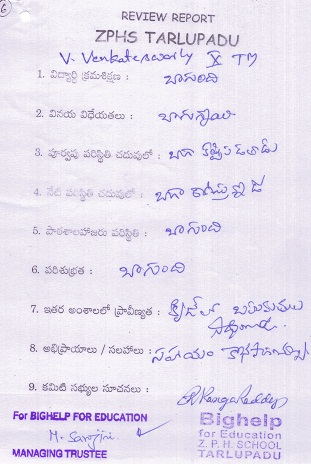 6
REVIEW REPORT
ZPHS TARLUPADU
V. Venkateswarly X TM
1. విద్యార్థి క్రమశిక్షణ : బాగుంది
2. వినయ విధేయతలు : బాగున్నాయి
3. పూర్వపు పరిస్థితి చదువులో : బాగా
4. నేటి పరిస్థితి చదువులో : బాగా
5. పాఠశాలహాజరు పరిస్థితి : బాగుంది
6. పరిశుభ్రత : బాగుంది
7. ఇతర అంశాలలో ప్రావీణ్యత : క్రీడలో బహుమతులు
8. అభిప్రాయాలు / సలహాలు : సహాయం
9. కమిటి సభ్యుల సూచనలు :
For BIGHELP FOR EDUCATION
M. Sarojini
MANAGING TRUSTEE
Bighelp
for Education
Z. P. H. SCHOOL
TARLUPADU